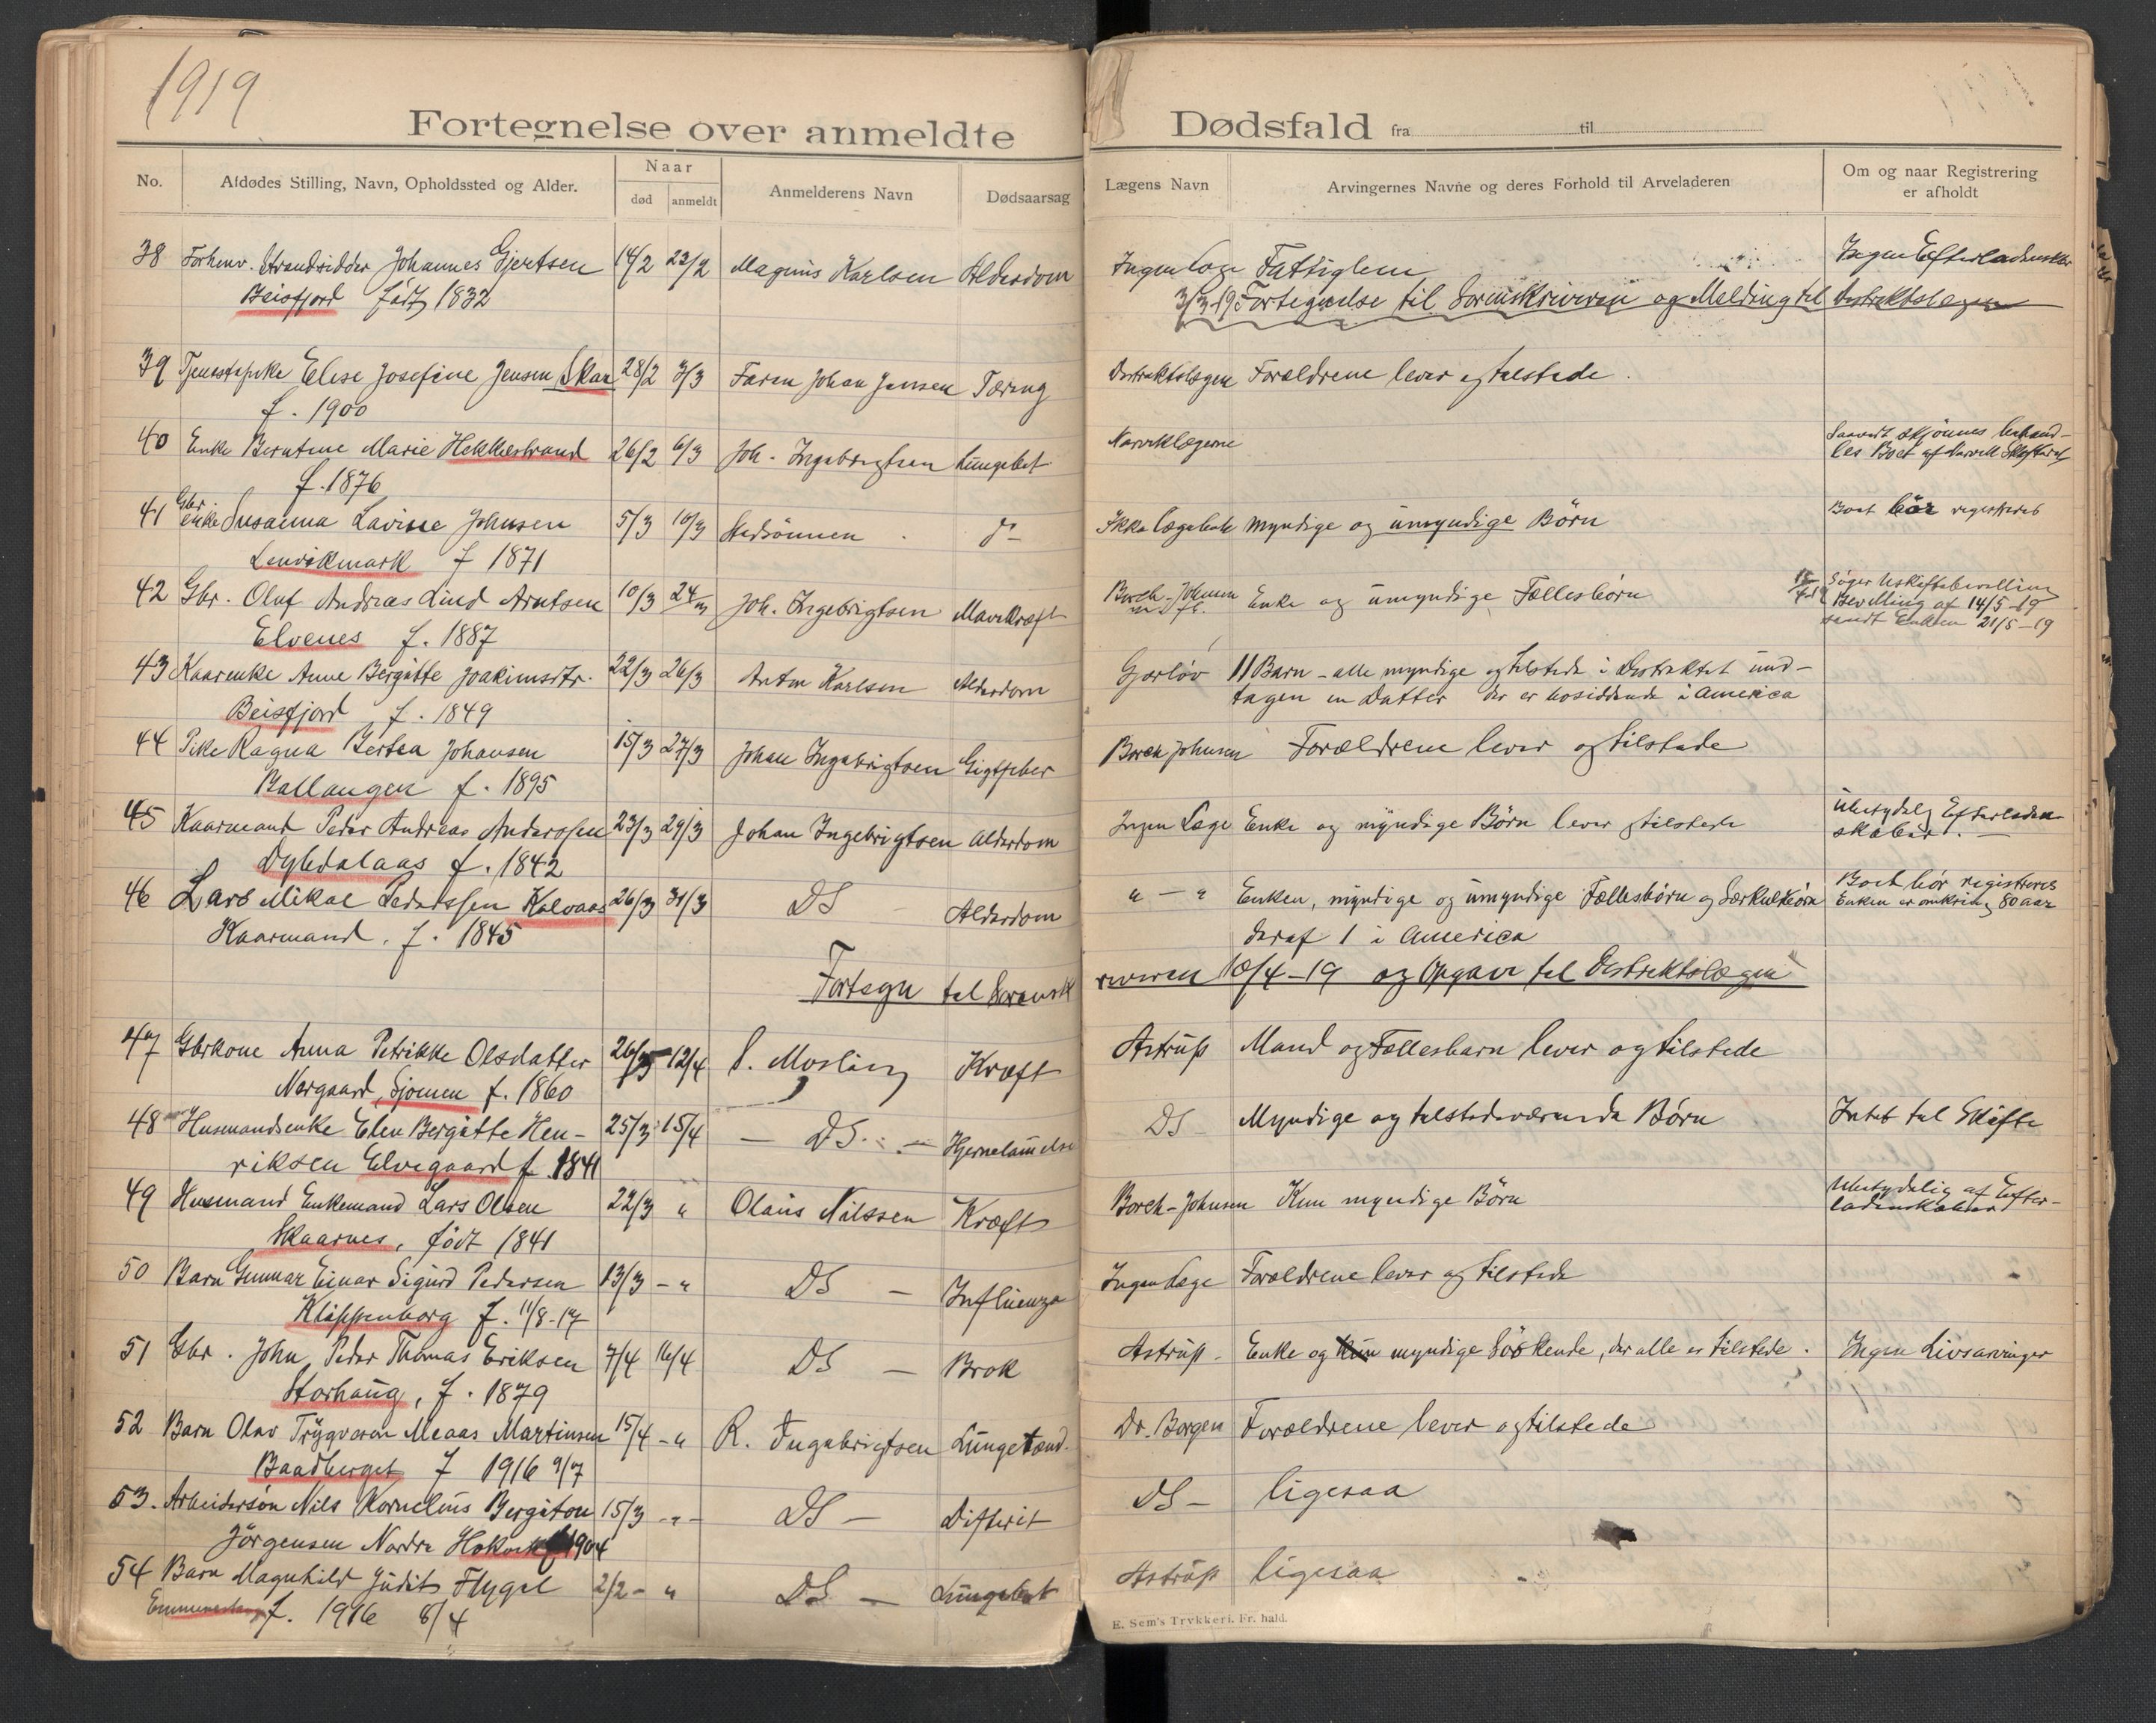 1919
Fortegnelse over anmeldte Dødsfald fra til
No. Afdødes Stilling, Navn, Opholdssted og Alder. Naar død anmeldt Anmelderens Navn Dødsaarsag Lægens Navn Arvingernes Navne og deres Forhold til Arveladeren Om og naar Registrering er afholdt
38 Forhenv. Strandsidder Johannes Gjertsen 14/2 23/2 Magnus Karlsen Alderdom Ingen Læge Fattiglem Ingen Efterladenskber
Beisfjord født 1832
3/3-19 Fortegnelse til Sorenskriveren og Melding til Destriktslægen
39 Tjenestepike Elise Josefine Jensen Skar 28/2 3/3 Faren Johan Jensen Tæring Destriktslægen Forældrene lever og tilstede.
f. 1900
40 Enke Berntine Marie Hekkelstrand 26/2 6/3 Joh. Ingebrigtsen Lungebet Narviklægerne Saavidt skjønnes behand-
f. 1876 les Boet af Narvik Skifteret
41 Gbr. enke Susanna Lavise Johnsen 5/3 10/3 Stedsønnen do Ikke lægebeh myndige og umyndige Børn Boet bør registreres
Lenvikmark f 1871
42 Gbr. Oluf Andreas Lind Arntsen 10/3 24/3 Joh. Ingebrigtsen Mavekræft Borch-Johnsen m. fl. Enke og umyndige Fællesbørn Søger Uskiftebevilling
Elvenes f. 1887 Bevilling af 14/5-19
sendt Enken 21/5-19
43 Kaarenke Anne Bergitte Joakimsdtr. 22/3 26/3 Anton Karlsen Alderdom Gjørløv 11 Barn - alle myndige og tilstede i Destriktet und-
Beisfjord f. 1849 tagen en Datter der er bosiddende i America
44 Pike Ragna Bertea Johansen 15/3 27/3 Johan Ingebrigtsen Gigtfeber Borch Johnsen Forældrene lever og tilstede
Ballangen f. 1895
45 Kaarmand Peder Andreas Anderssen 23/3 29/3 Johan Ingebrigtsen Alderdom Ingen Læge Enke og myndige Børn lever og tilstede Ubetydelig Efterladen-
Dybdalaas f. 1842 skaber.
46 Lars Mikal Pederssen Kalvaas 26/3 31/3 DS Alderdom " - " Enken, myndige og umyndige Fællesbørn og Særkulbørn Boet bør registreres
Kaarmand. f. 1845 deraf 1 i America Enken er omkring 80 aar
Fortegn til Sorenskriveren 10/4-19 og Opgave til Destriktslægen
47 Gbrkone Anna Petrikke Olsdatter 26/3 12/4 P. Mosling Kræft Astrup Mand og Fællesbarn lever og tilstede
Norgaard, Sjomen f. 1860
48 Husmandsenke Elen Bergitte Hen- 25/3 15/4 - DS. - Hjernelammelse DS Myndige og tilstedeværende Børn Intet til Skifte
riksen Elvegaard f. 1841
49 Husmand Enkemand Lars Olsen 22/3 " Olaus Nilssen Kræft Borch-Johnsen Kun myndige Børn Ubetydelig af Efter-
Skaarnes, født 1841 ladenskaber
50 Barn Gunnar Einar Sigurd Pedersen 13/3 - " DS - Influenza Ingen Læge Forældrene lever og tilstede
Klippenborg f. 11/8-17
51 Gbr. John Peder Thomas Eriksen 7/4 16/4 DS - Brok Astrup - Enke og kun myndige Søskende, der alle er tilstede. Ingen Livsarvinger
Storhaug, f. 1879
52 Barn Olav Trygveson Meaas Martinsen 15/4 - " R. Ingebrigtsen Lungebetænd. Dr. Borgen Forældrene lever og tilstede
Baadberget f 1916 9/7
53. Arbeidersøn Nils Kornelius Bergiton 15/3 - " - DS - Difterit DS - ligesaa
Jörgensen Nordre 1904
54 Barn Magnhild Judit Flygel 2/2 - " DS - Lungebet Astrup ligesaa
f. 1916 8/4
E. Sem's Trykkeri. Fr. hald.